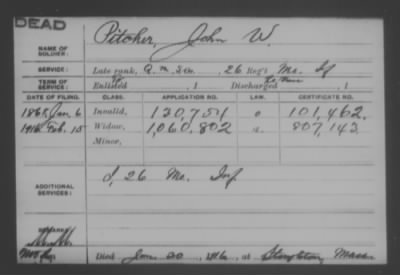 DEAD
Pitcher, John W.
NAME OF
SOLDIER:
SERVICE: Late rank, Q.M. Ser., 26 Reg't Me. Inf
TERM OF
SERVICE: Enlisted , 1 Discharged , 1
DATE OF FILING. CLASS. APPLICATION NO. LAW. CERTIFICATE NO.
Jan 6 Invalid, 120,754 101,462
1916 Feb. 15 Widow, 1,060,802 807,143
Minor,
ADDITIONAL
SERVICES: I, 26 Me. Inf.
REMARKS:
Died Jan 20, 1916, at Stoughton Mass